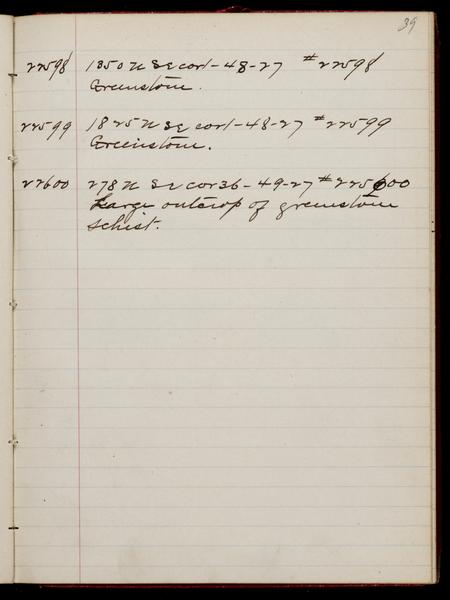 39
22598 1350 N SE cor 1-48-27 # 22598
Greenstone.
22599 1825 N SE cor 1-48-27 # 22599
Greenstone.
22600 278 N SE cor 36-49-27 # 225600
Large outcrop of greenstone
schist.